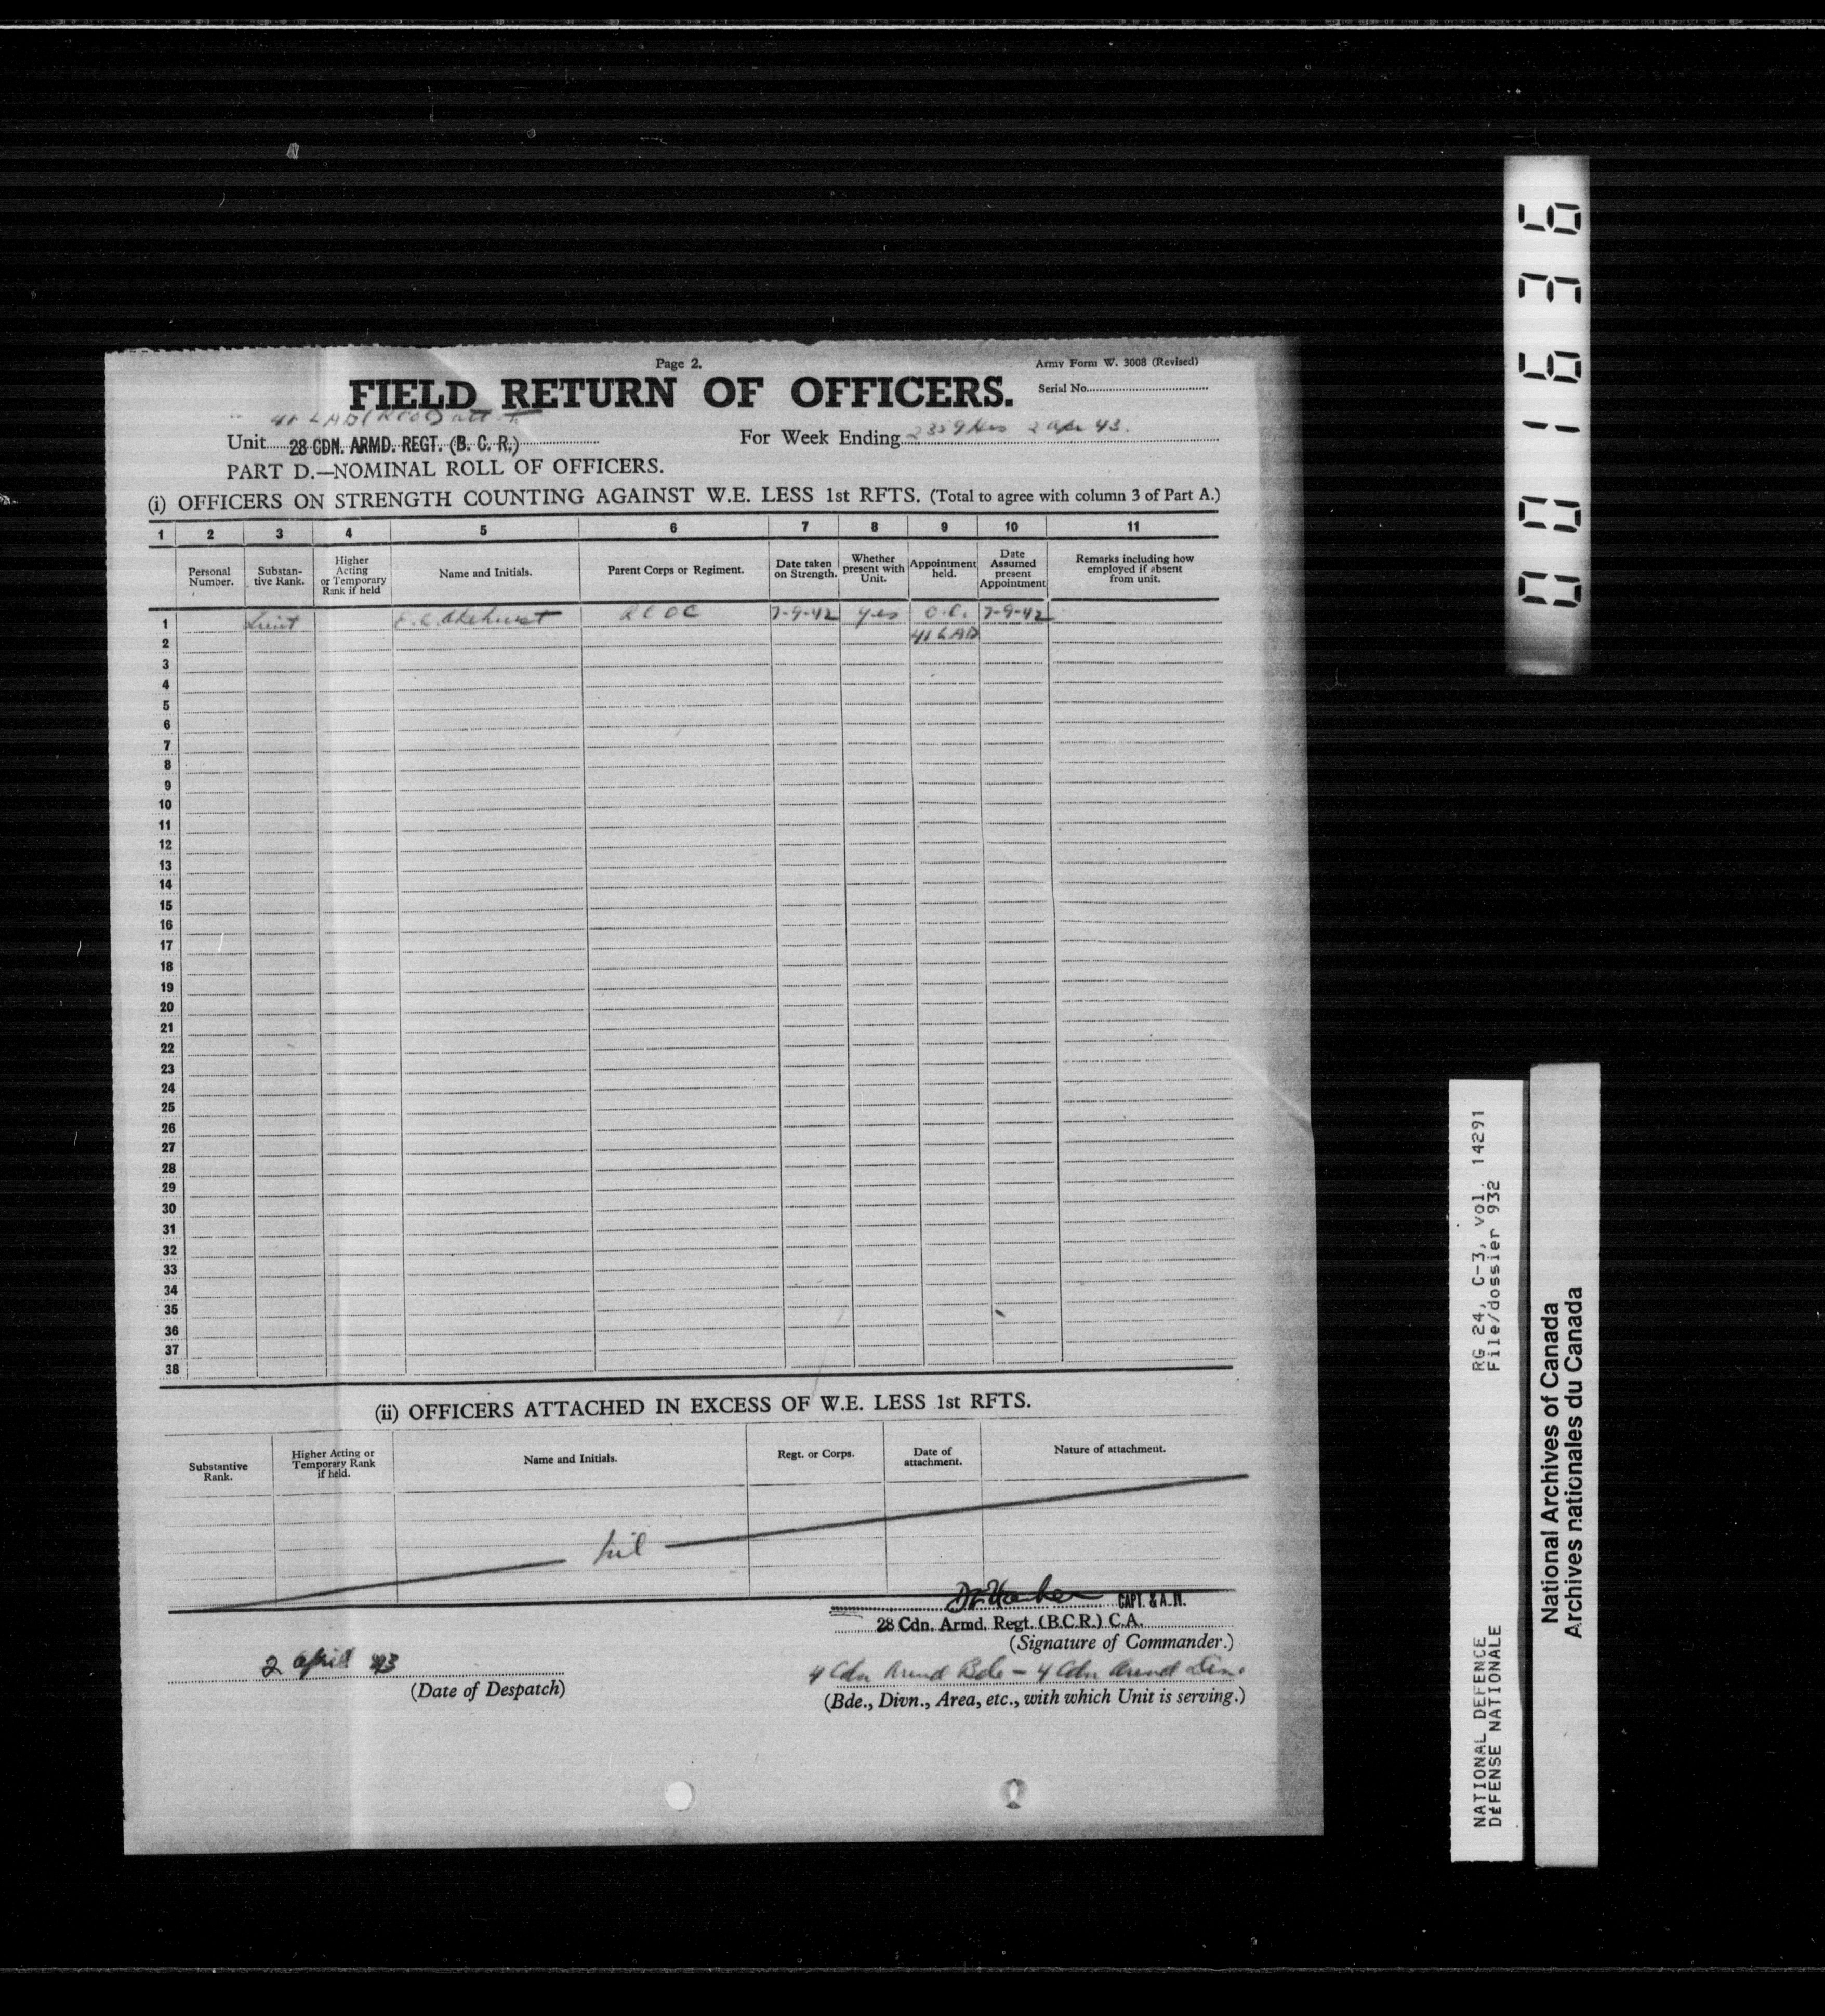 Page 2.
Army Form W. 3008 (Revised)
FIELD RETURN OF OFFICERS.
Serial No.
41 LAD (RCOC) att to
Unit 28 CDN. ARMD. REGT. (B. C. R.)
For Week Ending 2359 Hrs 2 Apr 43.
PART D.—NOMINAL ROLL OF OFFICERS.
(i) OFFICERS ON STRENGTH COUNTING AGAINST W.E. LESS 1st RFTS. (Total to agree with column 3 of Part A.)
1 2 3 4 5 6 7 8 9 10 11
Personal Number. Substan-tive Rank. Higher Acting or Temporary Rank if held Name and Initials. Parent Corps or Regiment. Date taken on Strength. Whether present with Unit. Appointment held. Date Assumed present Appointment Remarks including how employed if absent from unit.
1 Lieut E. C. Akehurst RCOC 7-9-42 yes O.C. 7-9-42
2 41 LAD
3
4
5
6
7
8
9
10
11
12
13
14
15
16
17
18
19
20
21
22
23
24
25
26
27
28
29
30
31
32
33
34
35
36
37
38
(ii) OFFICERS ATTACHED IN EXCESS OF W.E. LESS 1st RFTS.
Substantive Rank. Higher Acting or Temporary Rank if held. Name and Initials. Regt. or Corps. Date of attachment. Nature of attachment.
Nil
CAPT. & A.
28 Cdn. Armd. Regt. (B.C.R.) C.A.
(Signature of Commander.)
2 April 43
4 Cdn Armd Bde - 4 Cdn Armd Div.
(Date of Despatch)
(Bde., Divn., Area, etc., with which Unit is serving.)
001636
NATIONAL DEFENCE RG 24, C-3, vol. 14291
DÉFENSE NATIONALE File/dossier 932
National Archives of Canada
Archives nationales du Canada